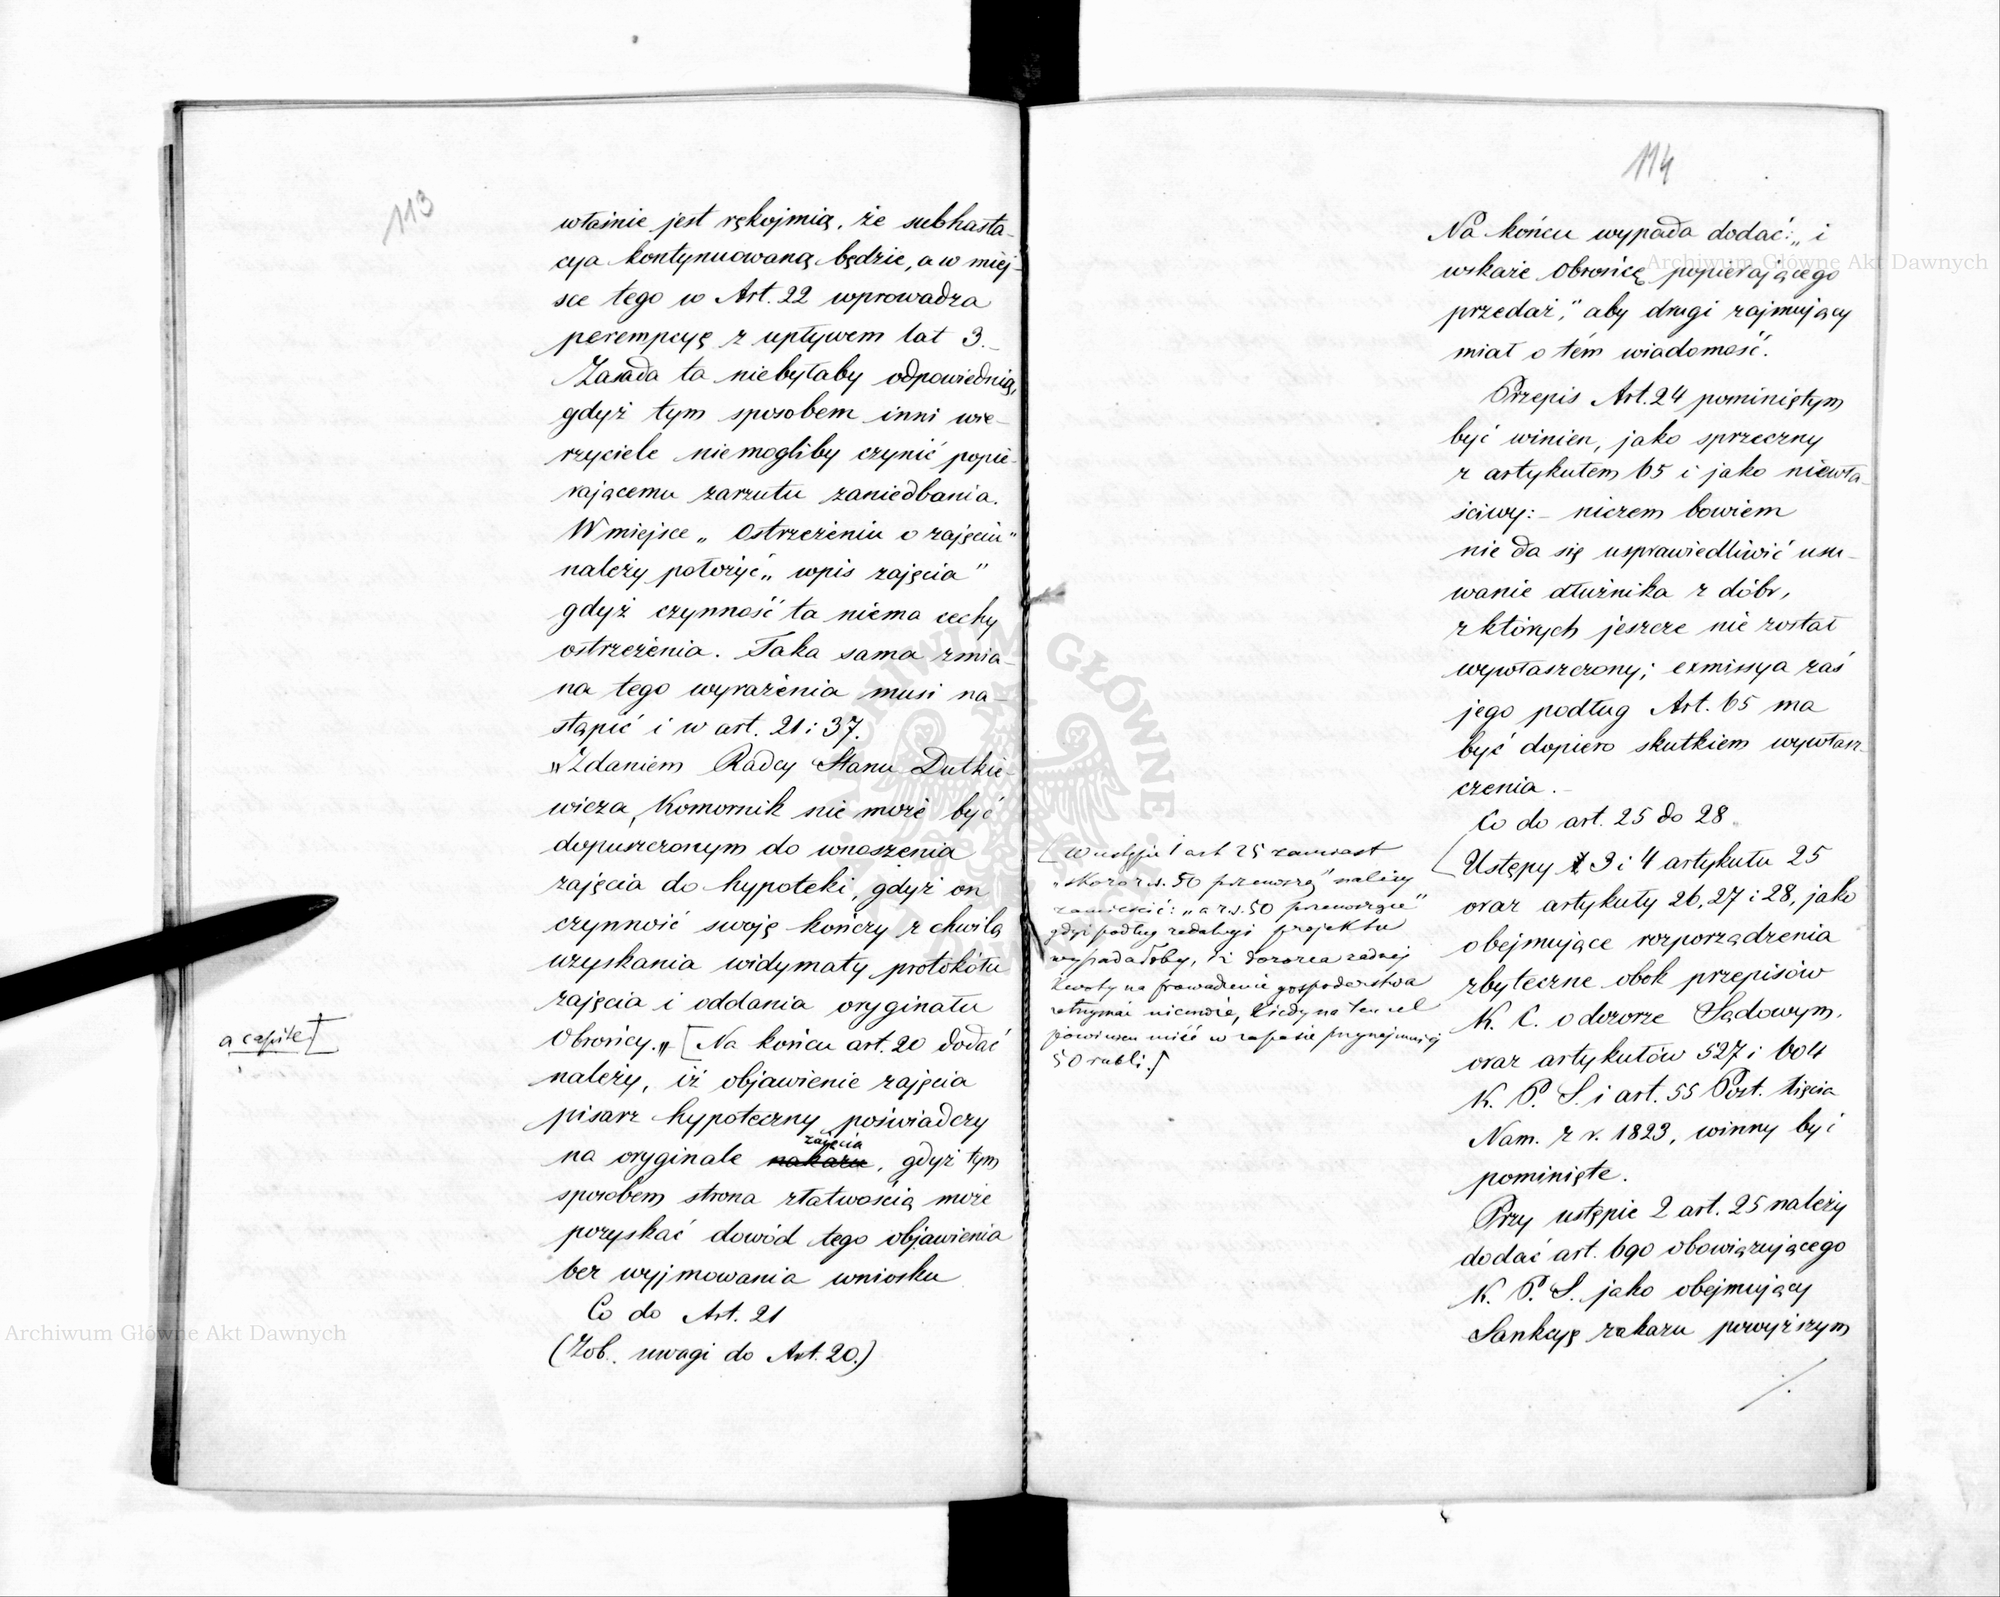 113
właśnie jest rękojmią, że subhasta-
cya kontynuowaną będzie, a w miej-
sce tego w Art. 22 wprowadza
perempcyę z upływem lat 3.-
Zasada ta niebyłaby odpowiednią,
gdyż tym sposobem inni wie-
rzyciele niemogliby czynić popie-
rającemu zarzutu zaniedbania.
W miejsce „Ostrzeżeniu o zajęciu"
należy położyć „wpis zajęcia"
gdyż czynność ta niema cechy
ostrzeżenia. Taka sama zmia-
na tego wyrażenia musi na-
stąpić i w art. 21 i 37.
"Zdaniem Radcy Stanu Dutkie-
wicza, Komornik nie może być
dopuszczonym do wnoszenia
zajęcia do hypoteki, gdyż on
czynność swoję kończy z chwilą
uzyskania widymaty protokółu
zajęcia i oddania oryginału
a capite
Obrońcy." [Na końcu art. 20 dodać
należy, iż objawienie zajęcia
pisarz hypoteczny poświadczy
zajęcia
na oryginale nakazu, gdyż tym
sposobem strona złatwością może
pozyskać dowód tego objawienia
bez wyjmowania wniosku
Co do Art. 21
(Zob. uwagi do Art. 20.)
114
Na końcu wypada dodać: „i
wskaże Obrońcę popierającego
przedaż," aby drugi zajmujący
miał o tém wiadomość.
Przepis Art. 24 pominiętym
być winien, jako sprzeczny
z artykułem 65 i jako niewła-
ściwy:- niczem bowiem
nie da się usprawiedliwić usu-
wanie dłużnika z dóbr,
z których jeszcze nie został
wywłaszczony; exmissya zaś
jego podług Art. 65 ma
być dopiero skutkiem wywłasz-
czenia.-
Co do art. 25 do 28.
[W ustępie 1 art 25 zamiast
„skoro r.s. 50 przenoszą" należy
zamieścić: „a r.s. 50 przenoszące"
gdyż podług redakcyi projektu
wypadałoby, że dozorca żadnej
kwoty na prowadzenie gospodarstwa
zatrzymać niemoże, kiedy na ten cel
powinien mieć w zapasie przynajmniej
50 rubli.]
[Ustępy 3 i 4 artykułu 25
oraz artykuły 26, 27 i 28, jako
obejmujące rozporządzenia
zbyteczne obok przepisów
K. C. o dozorze Sądowym,
oraz artykułów 527 i 604
K. P. S. i art. 55 Post. Księcia
Nam. z r. 1823, winny być
pominięte.
Przy ustępie 2 art. 25 należy
dodać art. 690 obowiązującego
K. P. S. jako obejmujący
Sankcyę zakazu powyższym
/.
Archiwum Główne Akt Dawnych
Archiwum Główne Akt Dawnych